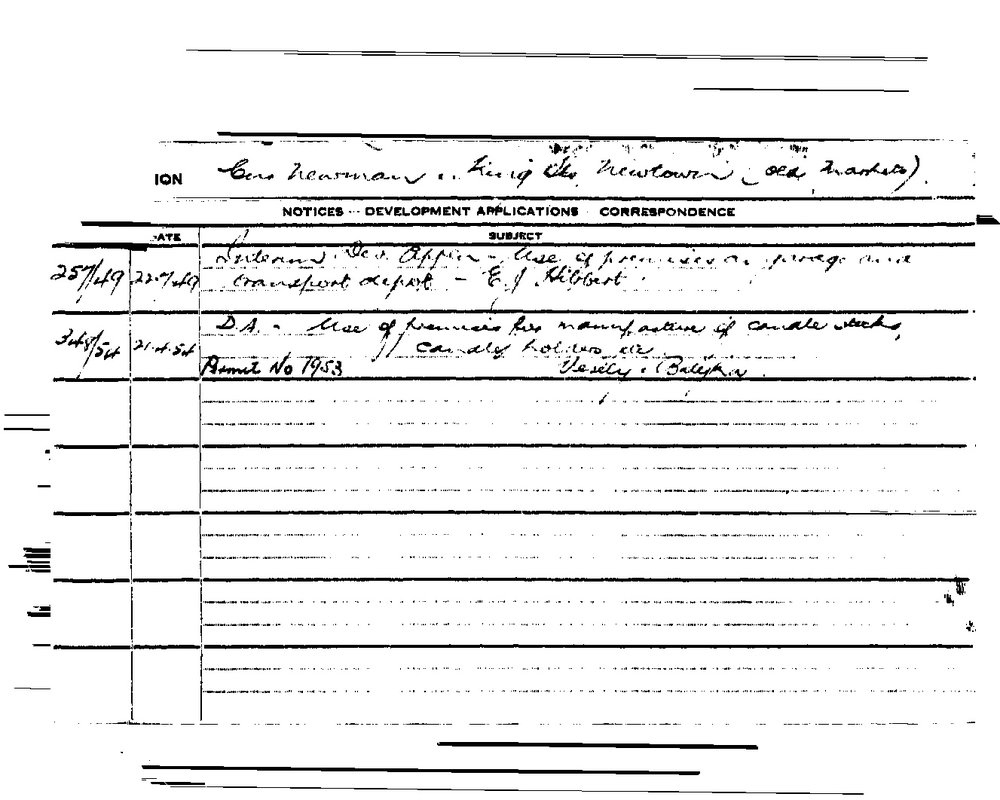 ION Cnr Newman & King Sts Newtown (old markets).
NOTICES -- DEVELOPMENT APPLICATIONS CORRESPONDENCE
ATE SUBJECT
257/49 22.7.49 Interim Dev. Appn - Use of premises as garage and
transport depot - E. J. Hibbert
348/54 21.4.54 D.A. - Use of premises for manufacture of candle sticks,
candle holders etc
Permit No 1953